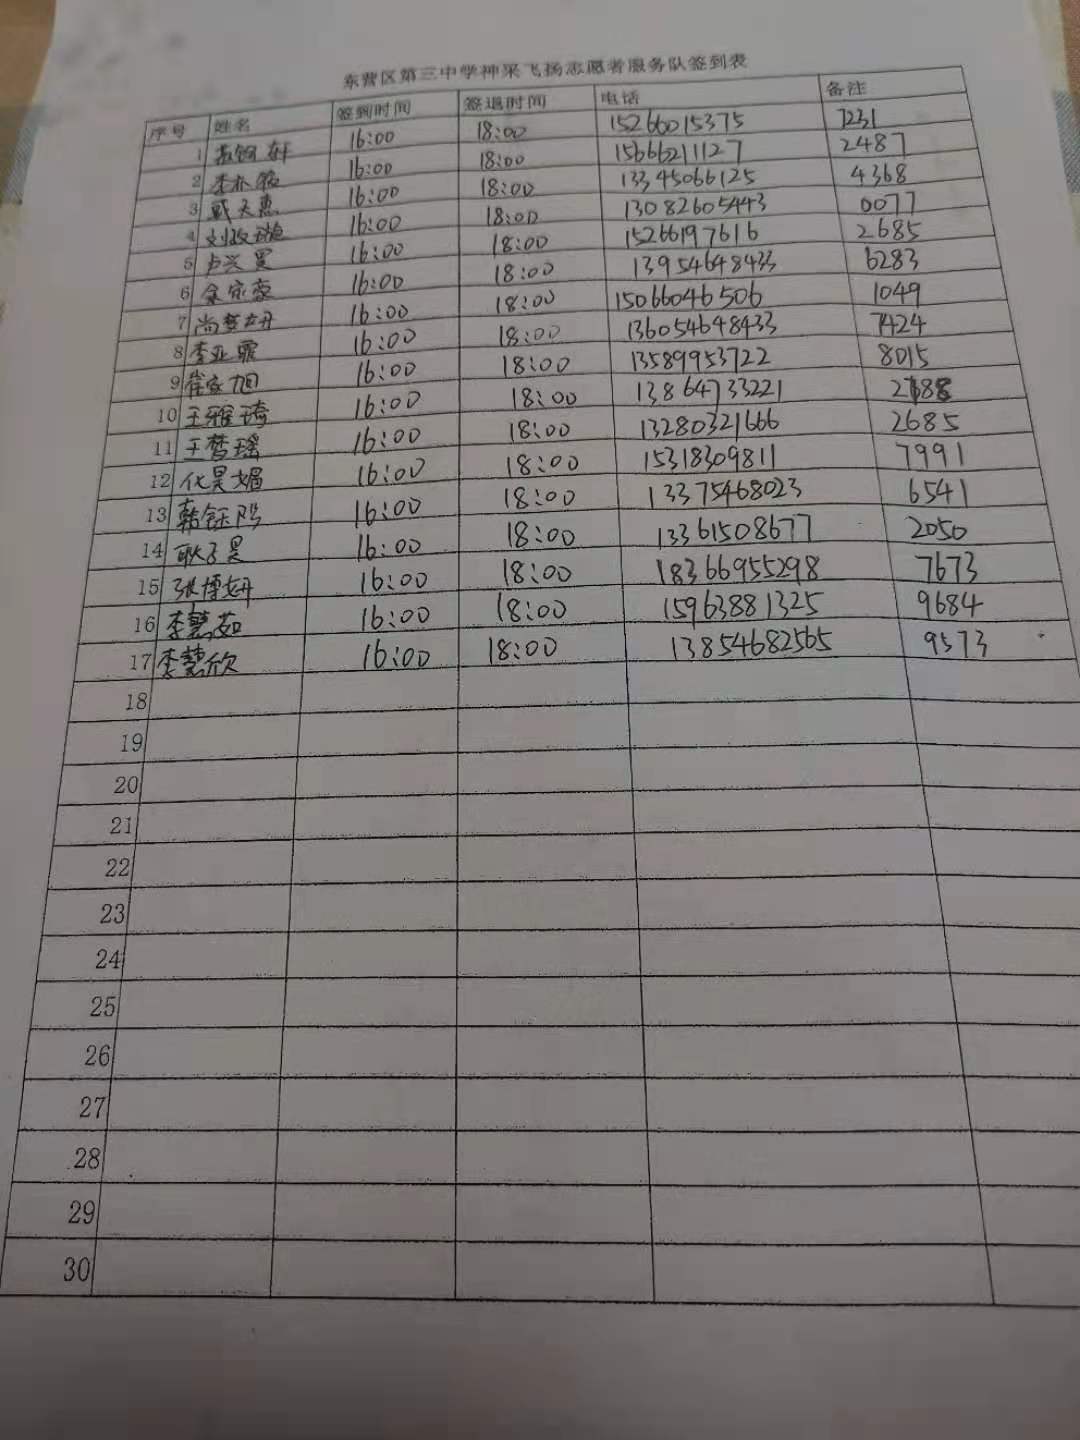 东营区第三中学神采飞扬志愿者服务队签到表
序号 姓名 签到时间 签退时间 电话 备注
1 16:00 18:00 15266015375 7231
2 李亦 16:00 18:00 15666211127 2487
3 戴天惠 16:00 18:00 13345066125 4368
4 刘政 16:00 18:00 13082605443 0077
5 卢兴昊 16:00 18:00 15266197616 2685
6 家豪 16:00 18:00 13954648433 6283
7 尚梦妍 16:00 18:00 15066046506 1049
8 李亚霏 16:00 18:00 136054648433 7424
9 崔家旭 16:00 18:00 13589953722 8015
10 王雅琦 16:00 18:00 13864733221
11 王梦瑶 16:00 18:00 13280321666 2685
12 化昊媚 16:00 18:00 15318309811 7991
13 韩钰阳 16:00 18:00 13375468023 6541
14 耿子昊 16:00 18:00 13361508677 2050
15 张博妍 16:00 18:00 18366955298 7673
16 李慧茹 16:00 18:00 15963881325 9684
17 李慧欣 16:00 18:00 13854682565 9573
18
19
20
21
22
23
24
25
26
27
28
29
30